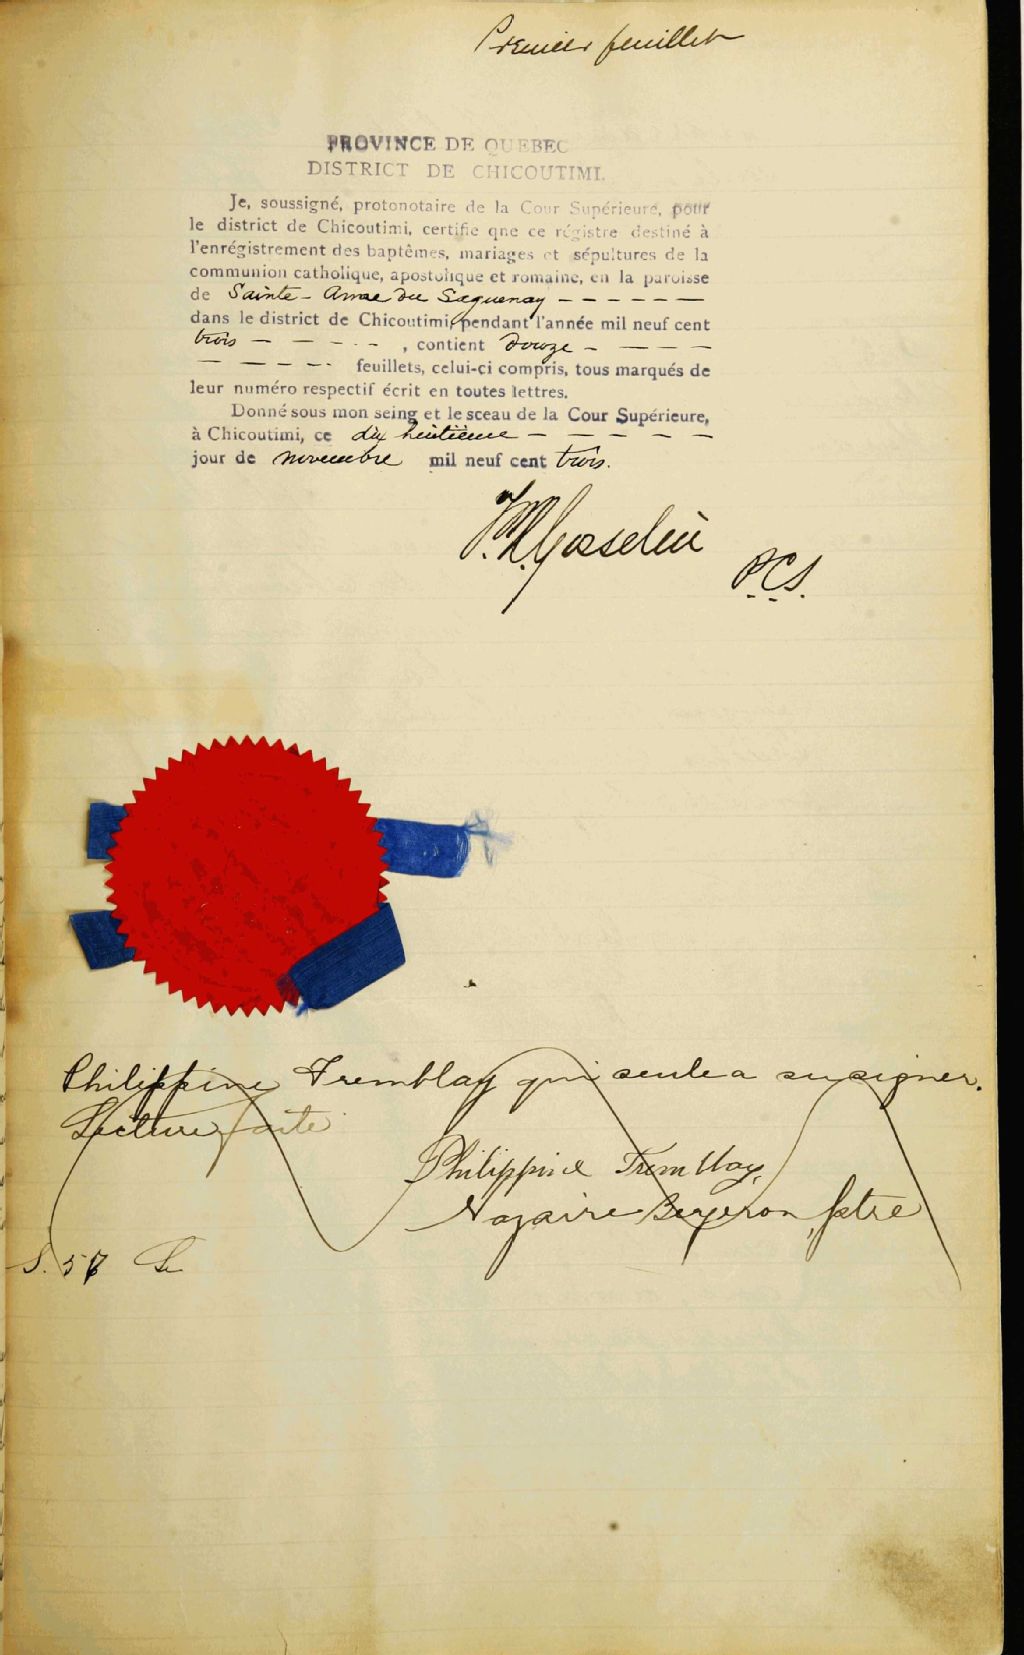 Premier feuillet
PROVINCE DE QUEBEC
DISTRICT DE CHICOUTIMI.
Je, soussigné, protonotaire de la Cour Supérieure, pour
le district de Chicoutimi, certifie qne ce régistre destiné à
l'enrégistrement des baptêmes, mariages et sépultures de la
communion catholique, apostolique et romaine, en la paroisse
de Sainte-Anne du Saguenay — — — — — —
dans le district de Chicoutimi, pendant l'année mil neuf cent
trois — — - - - — , contient douze - — — —
— — — — - feuillets, celui-ci compris, tous marqués de
leur numéro respectif écrit en toutes lettres.
Donné sous mon seing et le sceau de la Cour Supérieure,
à Chicoutimi, ce dix huitième — — — — —
jour de novembre mil neuf cent trois.
Gosselin
P.C.S.
Philippine Tremblay qui seule a su signer.
Lecture faite
Philippine Tremblay,
Nazaire Bergeron, ptre
S. 57 Le